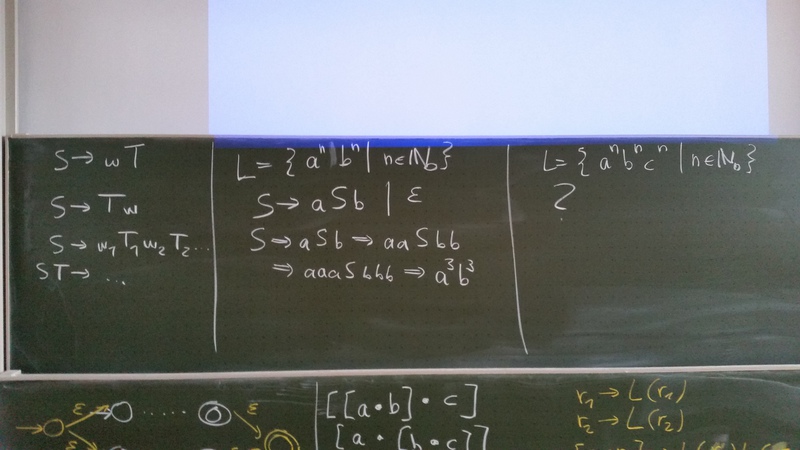 S → wT
S → Tw
S → w₁T₁w₂T₂...
ST → ...
L = {aⁿbⁿ | n∈ℕ₀}
S → aSb | ε
S ⇒ aSb ⇒ aaSbb
⇒ aaaSbbb ⇒ a³b³
L = {aⁿbⁿcⁿ | n∈ℕ₀}
?
ε ..... ε
ε
[[a•b]•c]
[a•[b•c]]
r₁ → L(r₁)
r₂ → L(r₂)